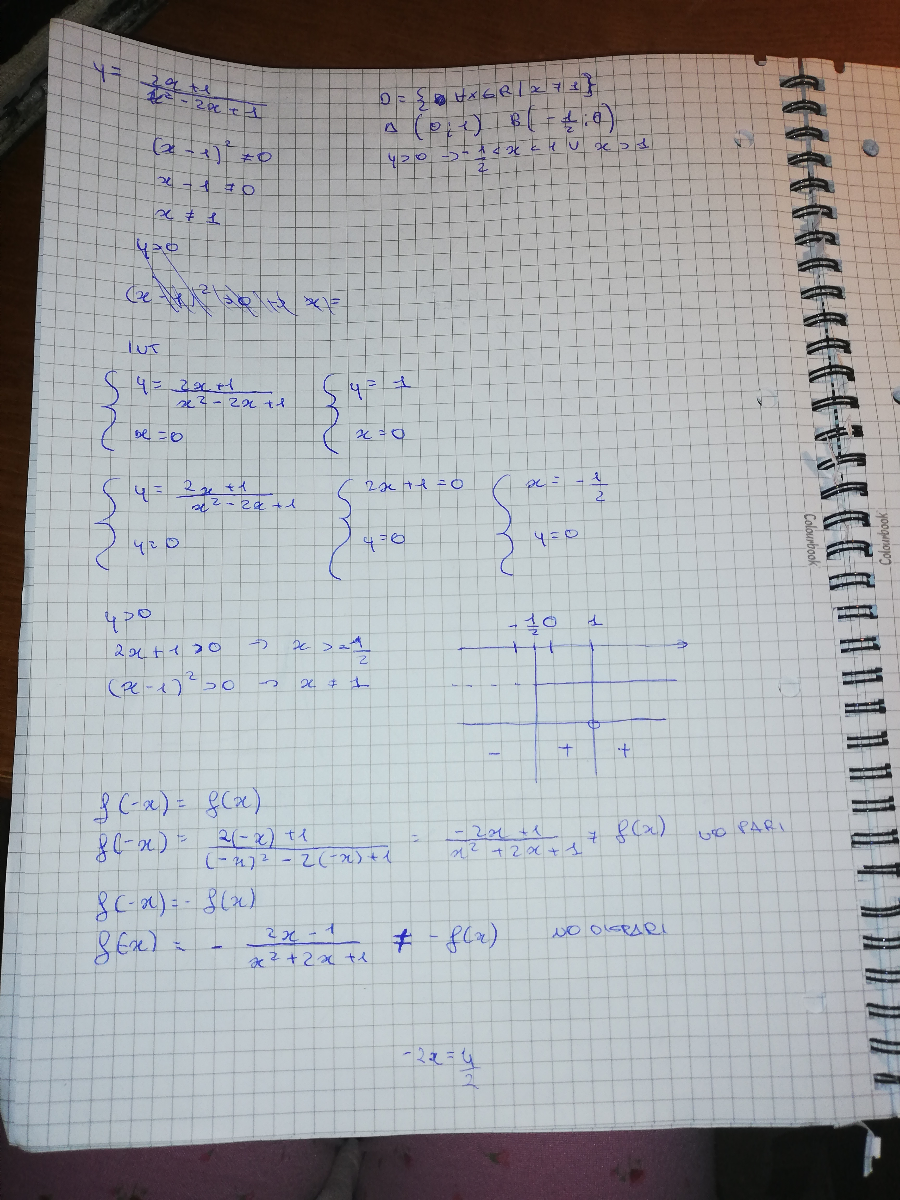 y = (2x+1)/(x²-2x+1)
D = { ∀x∈R | x ≠ 1}
(x-1)² ≠ 0
A (0;1) B(-1/2;0)
x-1 ≠ 0
y>0 → -1/2 < x < 1 ∪ x > 1
x ≠ 1
y>0
INT
{ y = (2x+1)/(x²-2x+1) { y = 1
x=0 x=0
{ y = (2x+1)/(x²-2x+1) { 2x+1=0 { x = -1/2
y=0 y=0 y=0
y>0
-1/2 0 1
2x+1>0 → x > -1/2
(x-1)²>0 → x ≠ 1
- + +
f(-x) = f(x)
f(-x) = (2(-x)+1)/((-x)²-2(-x)+1) = (-2x+1)/(x²+2x+1) ≠ f(x) NO PARI
f(-x) = -f(x)
f(-x) = - (2x-1)/(x²+2x+1) ≠ -f(x) NO DISPARI
-2x = 4/2
Colourbook
Colourbook